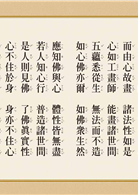 而由心故畫　諸法性如是
心如工畫師　能畫諸世間
五蘊悉從生　無法而不造
如心佛亦爾　如佛眾生然
應知佛與心　體性皆無盡
若人知心行　普造諸世間
是人則見佛　了佛真實性
心不住於身　身亦不住心